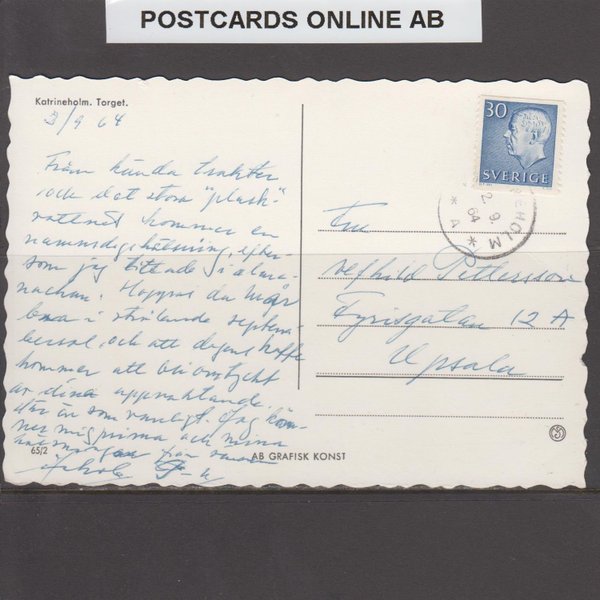 POSTCARDS ONLINE AB
Katrineholm. Torget.
2/9 64
Från kända trakter
och det stora "plask"
vattnet kommer en
namnsdagshälsning, efter-
som jag tittade i alma-
nackan. Hoppas du mår
bra i strålande septem-
bersol, och att
kommer att bli omtyckt
av dina
där är som vanligt. Jag kän-
ner mig prima och mina
från
65/2
AB GRAFISK KONST
30
SVERIGE
HOLM
2 9
64
* A *
Fru
Pettersson
Fyrisgatan 12 A
Upsala